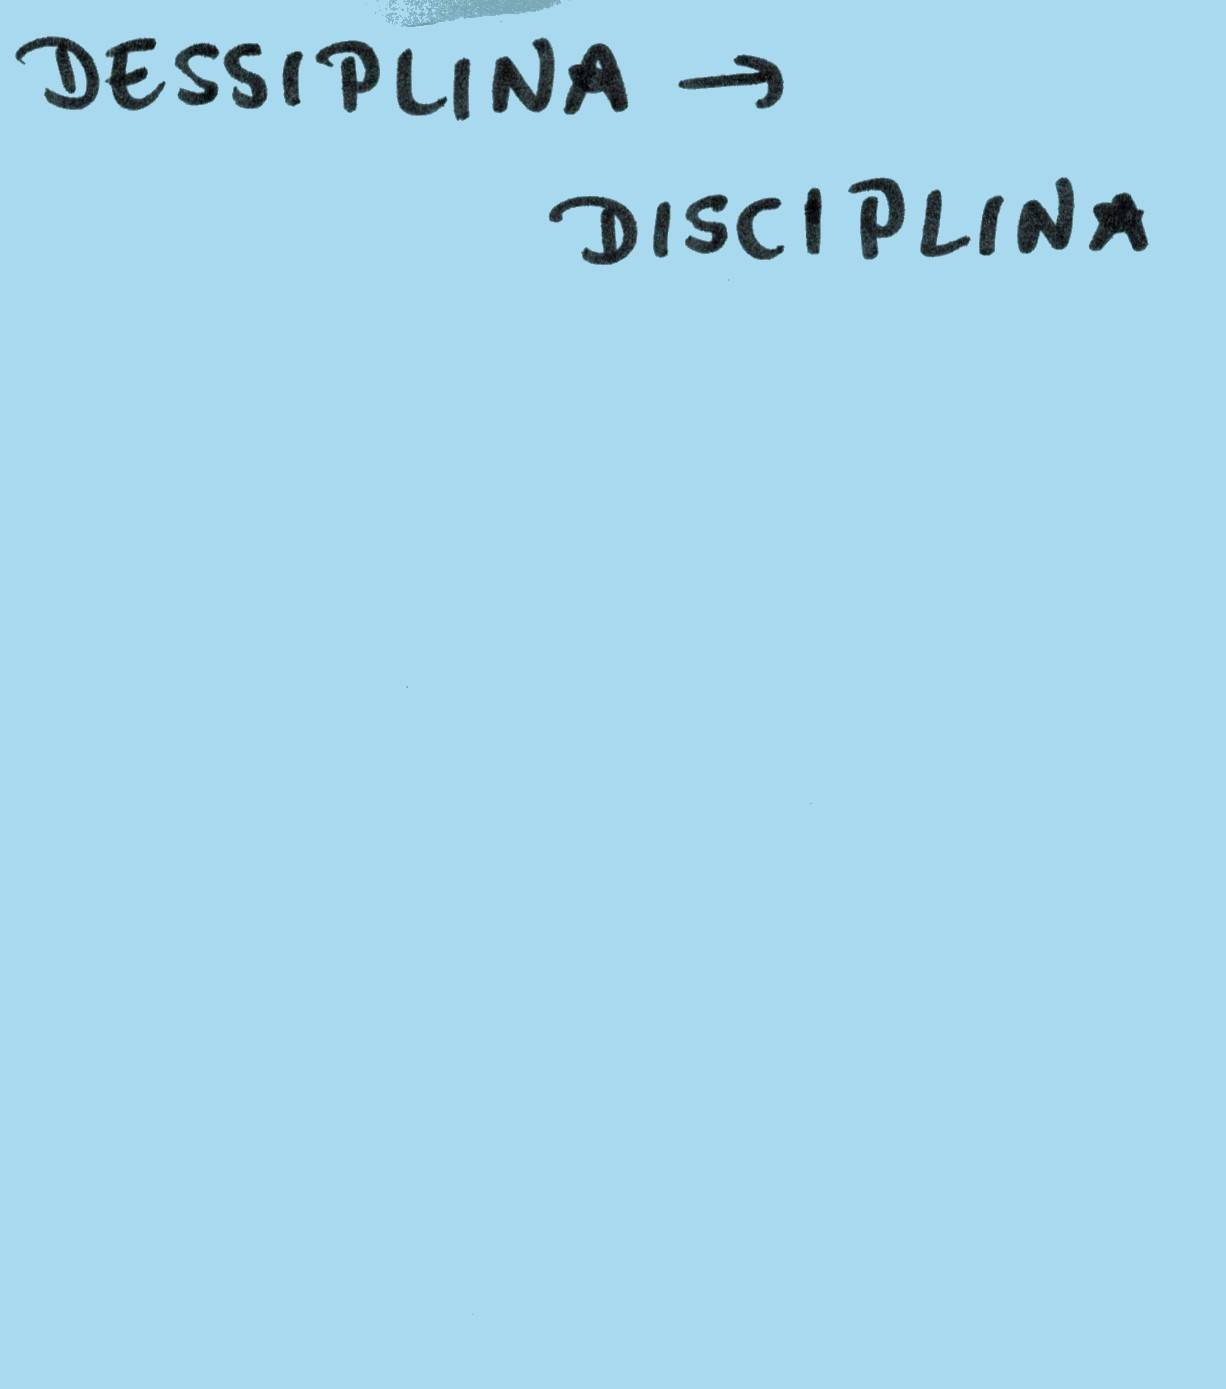 DESSIPLINA →
DISCIPLINA